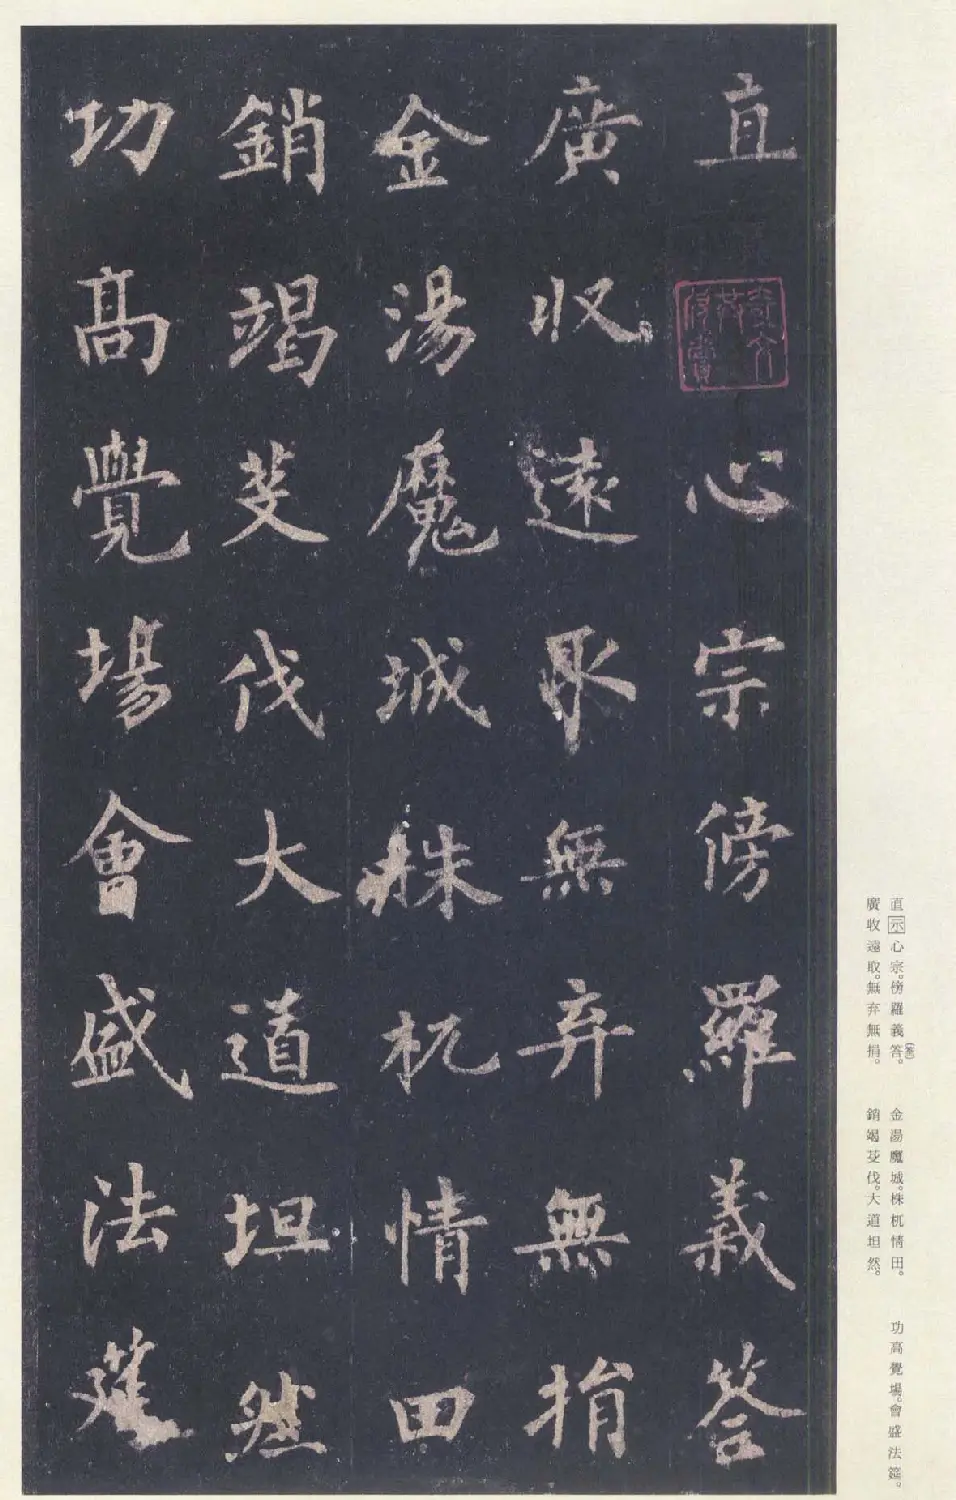 直心宗傍羅義答
廣收遠取無弃無捐
金湯魔城株杌情田
銷竭芟伐大道坦然
功高覺場會盛法筵
直示心宗。傍羅義答。
廣收遠取。無弃無捐。
金湯魔城。株杌情田。
銷竭芟伐。大道坦然。
功高覺場。會盛法筵。